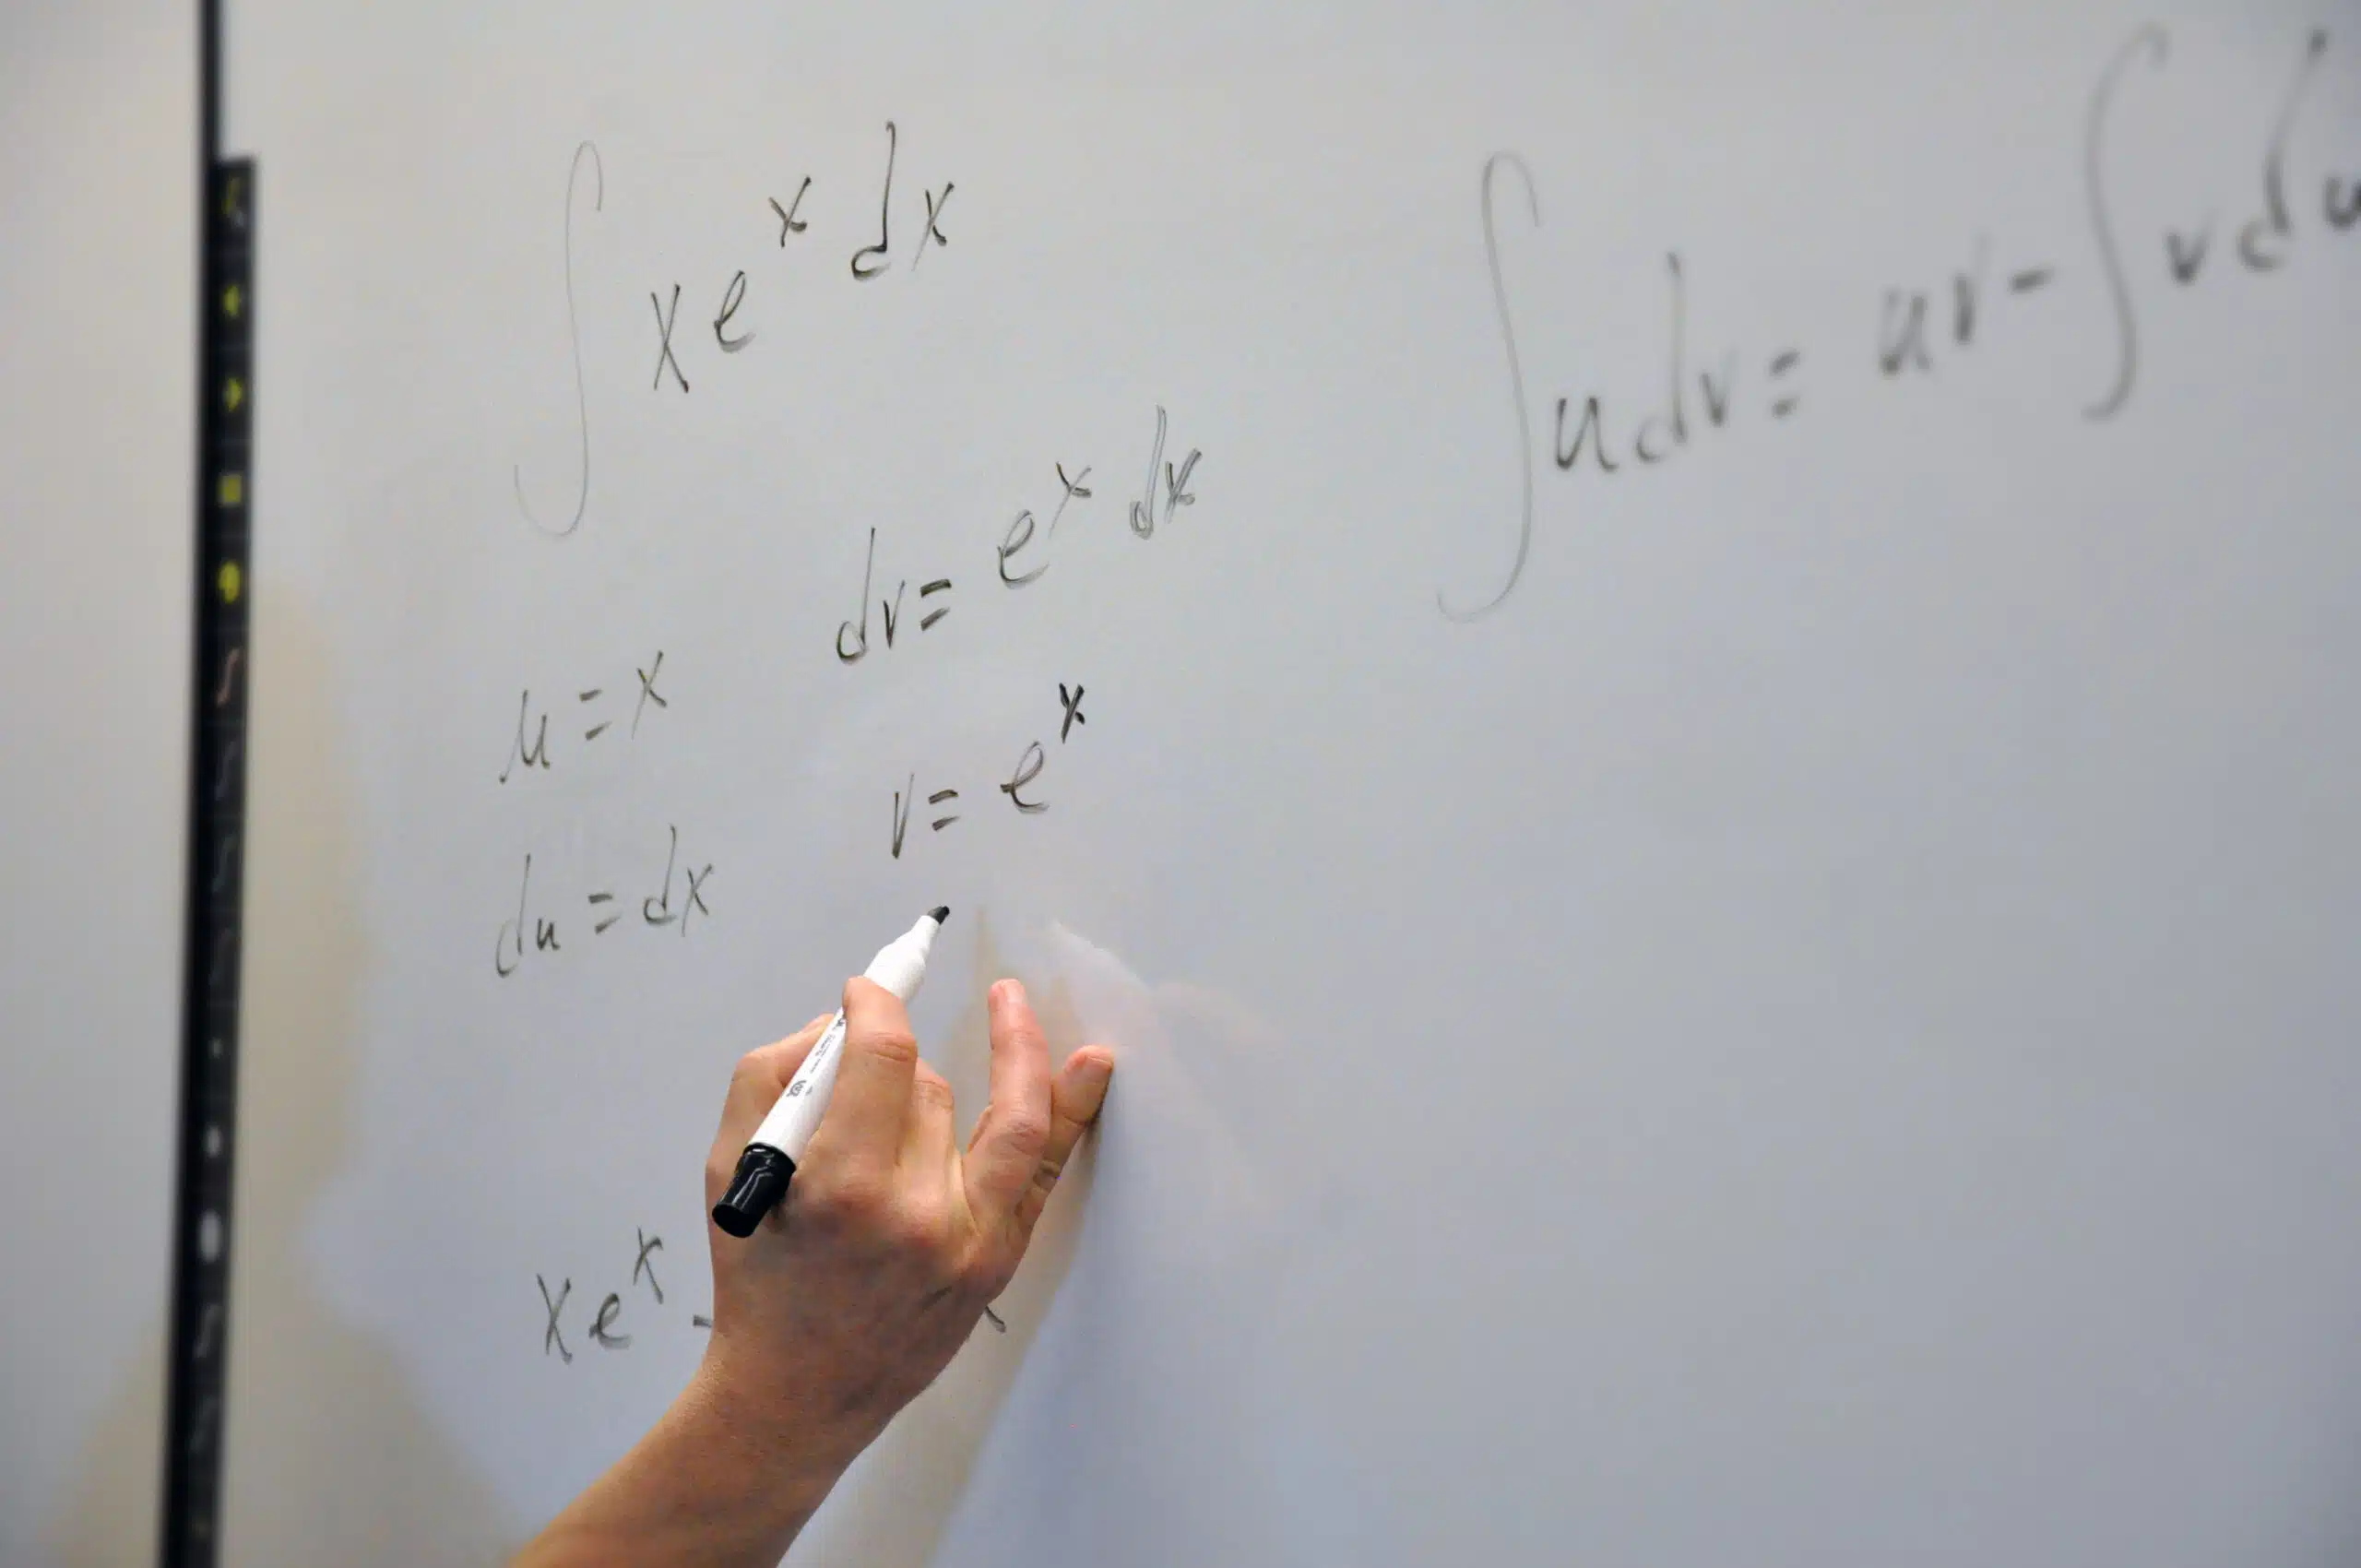 ∫ x eˣ dx
∫ u dv = uv - ∫ v du
u = x dv = eˣ dx
du = dx v = eˣ
x eˣ -